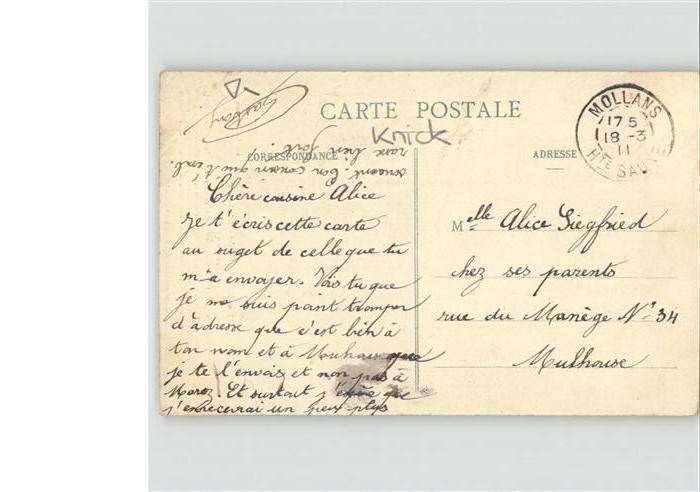 CARTE POSTALE
Knick
CORRESPONDANCE
ADRESSE
MOLLANS
17 5
18 - 3
11
Hte SAV
Chère cousine Alice
je t'écris cette carte
au suget de celle que tu
m'a envoyer. Vois tu que
je me suis point tromper
d'adresse que c'est bien à
ton nom et à Mulhouse que
je te l'envois et non pas à
Maroz. Et surtout j'espère que
j'en recevrai un peu plus
souvent. Ton cousin que t'em
rasse bien fort
Gaston
Melle Alice Siegfried
chez ses parents
rue du Manège No 34
Mulhouse